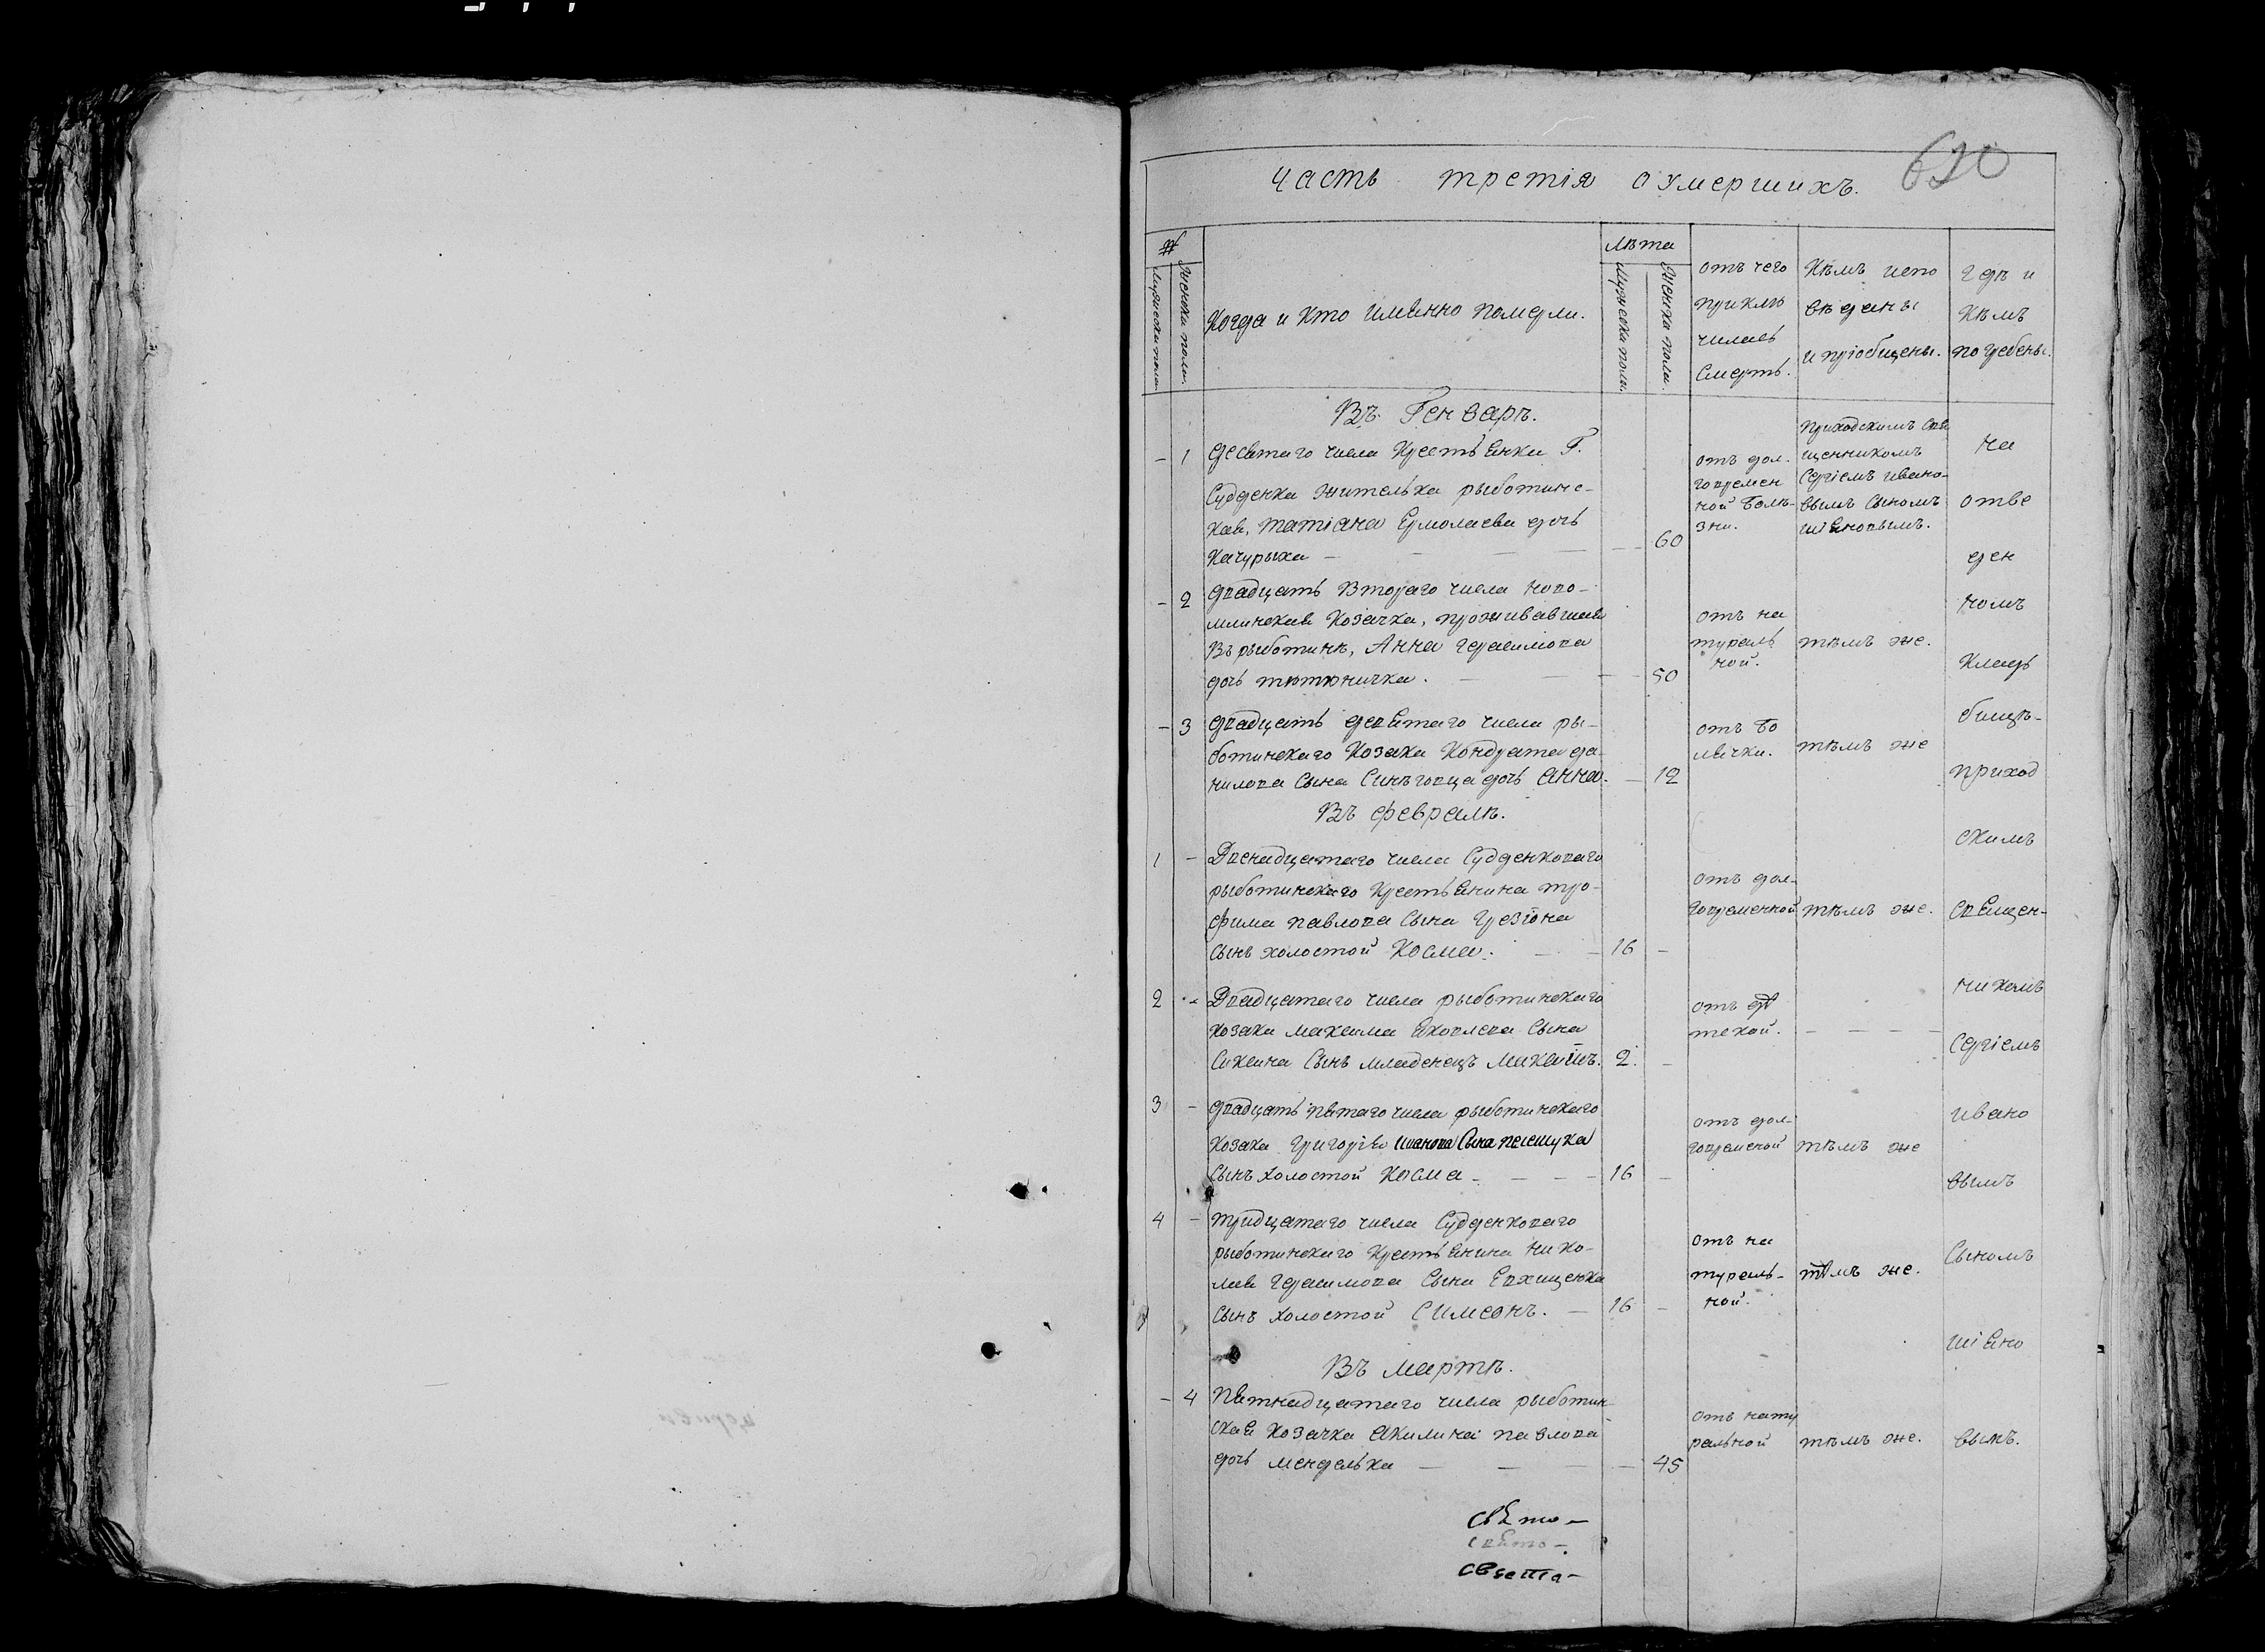 620
Часть третія о умершихъ.
№
Мужеска пола.
Женска пола.
Когда и кто именно померли.
Лѣта
Мужеска пола.
Женска пола.
отъ чего
приклю
чилась
Смерть.
Кѣмъ испо
вѣданы
и пріобщены.
гдѣ и
Кѣмъ
погребены.
Въ Генварѣ.
- 1 десятаго числа Крестьянки Г.
Судденка жителька рыботинс-
кая, татіана Ермолаева дочь
Качурыха - 60
отъ дол-
говремен
ной болѣ-
зни.
Приходскимъ Свя
щенникомъ
Сергіемъ ивано-
вымъ Сыномъ
шіяновымъ.
- 2 двадцать Втораго числа ново-
млинская Козачка, проживавшая
Въ рыботинѣ, Анна герасимова
дочь тютюничка. - 50
отъ на
тураль
ной.
тѣмъ же.
- 3 двадцать девятаго числа ры-
ботинскаго Козака Кондрата да-
нилова Сына Синѣговца дочь анна. - 12
отъ бо
лячки.
тѣмъ же
Въ февралѣ.
1 - Двенадцатаго числа Судденковаго
рыботинскаго Крестьянина тро-
фима павлова Сына Грезіона
Сынъ холостой Косма. - 16 -
отъ дол-
говременной
тѣмъ же.
2 - Двадцатаго числа рыботинскаго
козака максима яковлева Сына
Сиксина Сынъ младенецъ Михаилъ. 2. -
отъ дѣ
тской.
- - - -
3 - двадцать пятаго числа рыботинскаго
козака григорія иванова Сына
Сынъ холостой Косма - 16 -
отъ дол-
говременой
тѣмъ же
4 - тридцатаго числа Судденковаго
рыботинскаго Крестьянина нико-
лая герасимова Сына Евхищенка
Сынъ холостой Симеонъ. - 16 -
отъ на
тураль-
ной.
тѣмъ же.
Въ мартѣ.
- 4 пятнадцатаго числа рыботин-
ская козачка акилина павлова
дочь менделька - 45
отъ нату
ральной
тѣмъ же.
на
отве
ден
номъ
кладь
бищѣ-
приход
скимъ
Священ-
никомъ
Сергіемъ
ивано
вымъ
Сыномъ
шіяно
вымъ.
свято-
свято-